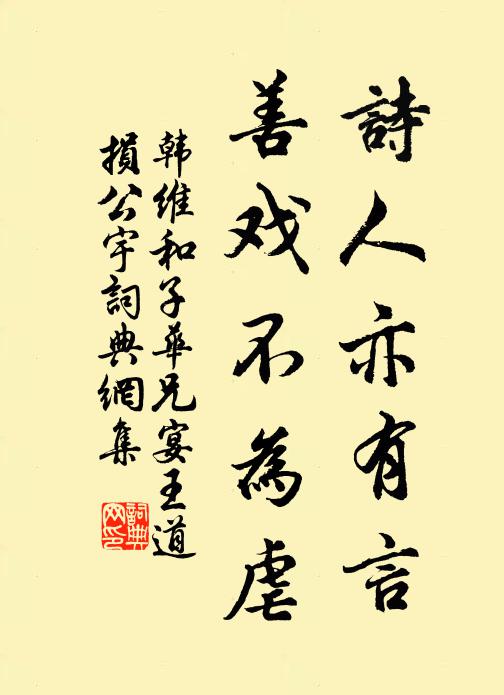 詩人亦有言
善戏不為虐
韩維和子華兄宴王道
損公宇詞典網集
詞典网印